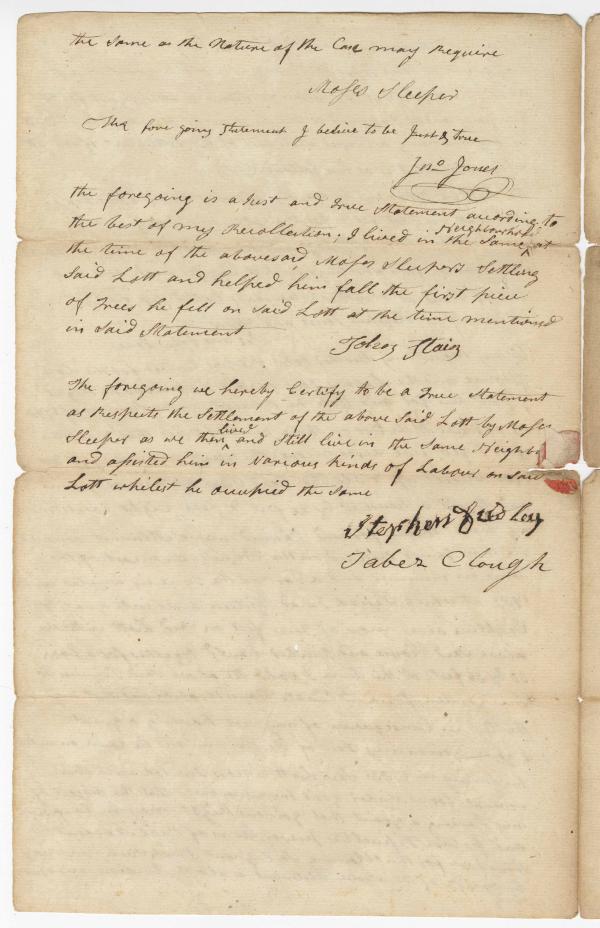 the Same as the Nature of the Case may Require
Moses Sleeper
The fore going Statement I beleive to be Just & true
Jno Jones
the foregoing is a Just and true Statement according to
the best of my Recollection. I lived in the Same Neighborhood at
the time of the abovesaid Moses Sleepers Settling
Said Lott and helped him fall the first piece
of Trees he fell on Said Lott at the time mentioned
in Said Statement
The foregoing we hereby Certify to be a True Statement
as Respects the Settlement of the above Said Lott by Moses
Sleeper as we then lived and Still live in the Same
and assisted him in Various kinds of Labour on Said
Lott whilest he occupied the Same
Stephen Dudley
Jabez Clough